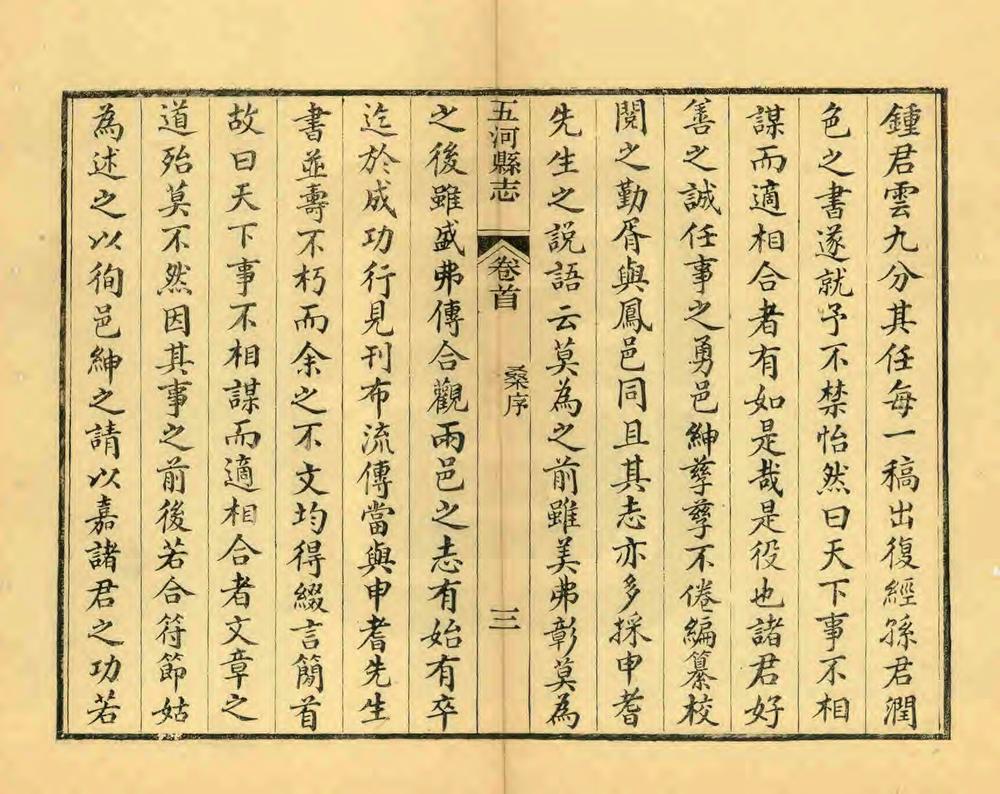 鍾君雲九分其任每一稿出復經孫君潤
色之書遂就予不禁怡然曰天下事不相
謀而適相合者有如是哉是役也諸君好
善之誠任事之勇邑紳孳孳不倦編纂校
閱之勤胥與鳳邑同且其志亦多採申耆
先生之説語云莫為之前雖美弗彰莫為
五河縣志
卷首
桑序
三
之後雖盛弗傳合觀兩邑之志有始有卒
迄於成功行見刊布流傳當與申耆先生
書並壽不朽而余之不文均得綴言簡首
故曰天下事不相謀而適相合者文章之
道殆莫不然因其事之前後若合符節姑
為述之以徇邑紳之請以嘉諸君之功若